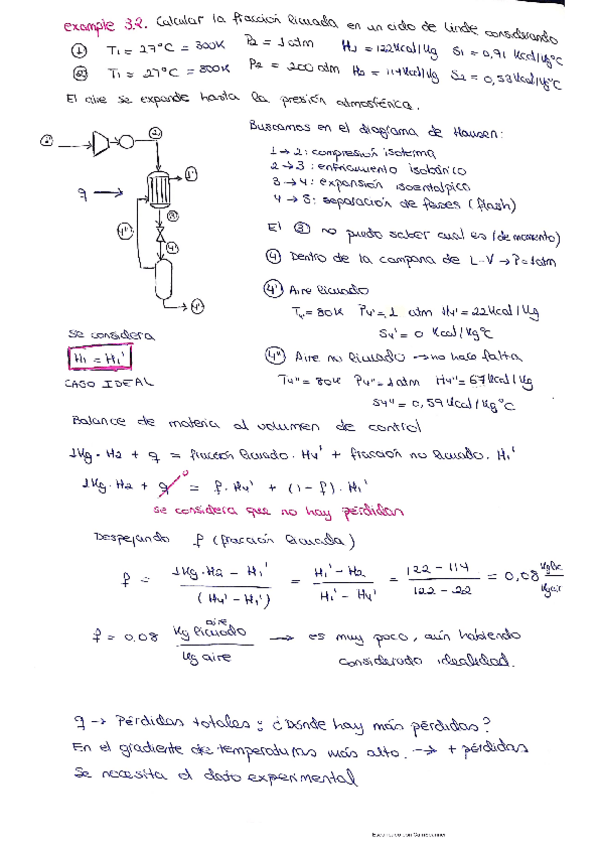 example 3.2. Calcular la fracción licuada en un ciclo de Linde considerando
① T1 = 27°C = 300K P2 = 1 atm H1 = 122 Kcal/Kg S1 = 0,91 Kcal/Kg°C
② T1 = 27°C = 300K P2 = 200 atm H2 = 114 Kcal/Kg S2 = 0,53 Kcal/Kg°C
El aire se expande hasta la presión atmosférica.
Buscamos en el diagrama de Hausen:
1 → 2: compresión isoterma
2 → 3: enfriamiento isobárico
3 → 4: expansión isoentálpica
4 → 5: separación de fases (flash)
El ③ no puedo saber cual es (de momento)
④ Dentro de la campana de L-V → P=1atm
④' Aire licuado
T4' = 80K P4' = 1 atm H4' = 22 Kcal/Kg
S4' = 0 Kcal/Kg°C
④'' Aire no licuado → no hace falta
T4'' = 80K P4'' = 1 atm H4'' = 67 Kcal/Kg
S4'' = 0,59 Kcal/Kg°C
② 1' q 3 4 4'' 4'
Se considera
H1 = H1'
CASO IDEAL
Balance de materia al volumen de control
1Kg · H2 + q = fracción licuado · H4' + fracción no licuado · H1'
1Kg · H2 + q = f · H4' + (1 - f) · H1'
0
se considera que no hay pérdidas
Despejando f (fracción licuada)
f = 1Kg·H2 - H1' / (H4' - H1') = H1' - H2 / H1' - H4' = 122 - 114 / 122 - 22 = 0,08 Kg lic / Kg air
f = 0,08 Kg aire licuado / Kg aire → es muy poco, aún habiendo
considerado idealidad.
q → Pérdidas totales: ¿Dónde hay más pérdidas?
En el gradiente de temperaturas más alto. → + pérdidas
Se necesita el dato experimental
Escaneado con CamScanner